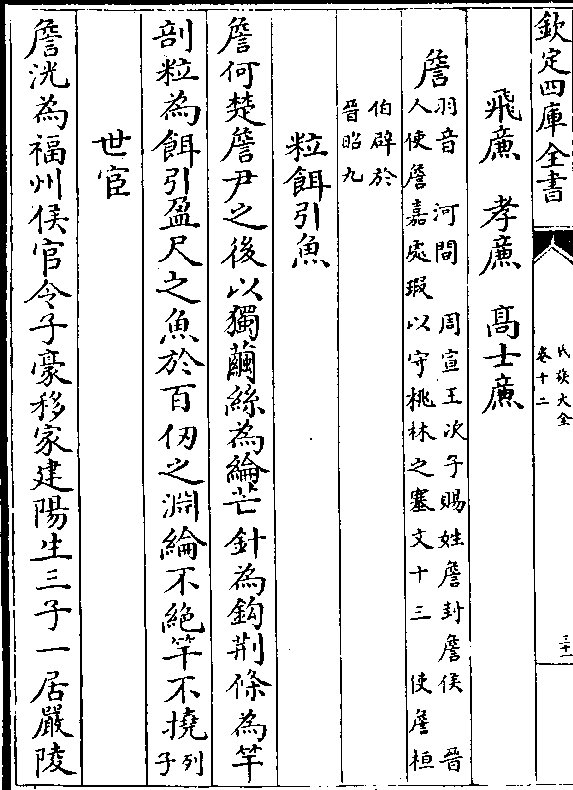 欽定四庫全書
氏族大全
卷十二
三十一
飛㢘 孝㢘 髙士㢘
詹
羽音 河間 周宣王次子賜姓詹封詹侯 晉
人使詹嘉處瑕以守桃林之塞文十三 使詹桓
伯辟於
晉昭九
粒餌引魚
詹何楚詹尹之後以獨繭絲為綸芒針為鈎荆條為竿
剖粒為餌引盈尺之魚於百仞之淵綸不絶竿不撓
列
子
世宦
詹洸為福州侯官令子豪移家建陽生三子一居嚴陵